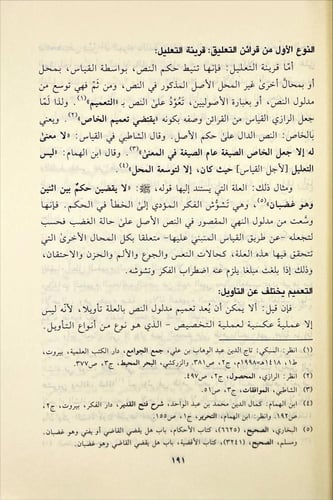 النوع الأول من قرائن التعليق: قرينة التعليل:
أمّا قرينة التعليل: فإنها تنيط حكم النص، بواسطة القياس، بمحل
أو بمحالّ أخرى غير المحل الأصل المذكور في النص، ومن ثَمّ فهي توسع من
مدلول النص، أو بعبارة الأصوليين، تَعُوْدُ على النص بـ «التعميم»(١). ولذا لمّا
جعل الرازي القياس من القرائن وصفه بكونه «يقتضي تعميم الخاص»(٢). ويعني
بالخاص: النص الدال على حكم الأصل. وقال الشاطبي في القياس: «لا معنىٰ
له إلا جعل الخاص الصيغة عام الصيغة في المعنىٰ»(٣). وقال ابن الهمام: «ليس
التعليل [لأجل القياس] حيث كان، إلا لتوسعة المحل»(٤).
ومثال ذلك: العلة التي يستند إليها قوله، ﷺ: «لا يقضين حكمٌ بين اثنين
وهو غضبان»(٥)، وهي تشوُّش الفكر المؤدي إلىٰ الخطأ في الحكم. فإنها
وسعت من مدلول النهي المقصور في النص الأصل علىٰ حالة الغضب فحسب
لتجعله -عن طريق القياس المنبني عليها- متعلقا بكل المحالّ الأخرىٰ التي
تتحقق فيها هذه العلة، كحالات النعس والجوع والألم والحزن والاحتقان،
وذلك إذا بلغت مبلغا يلزم عنه اضطراب الفكر وتشوشه.
التعميم يختلف عن التأويل:
فإن قيل: ألا يمكن أن يُعد تعميم مدلول النص بالعلة تأويلا، لأنه ليس
إلا عمليةً عكسية لعملية التخصيص - الذي هو نوع من أنواع التأويل.
(١) انظر: السبكي: تاج الدين عبد الوهاب بن علي، جمع الجوامع، دار الكتب العلمية، بيروت،
ط١، ١٤١٨هـ=١٩٩٨م، ج٢، ص٣٨١. والزركشي، البحر المحيط، ج٢، ص٣٧٧.
(٢) انظر: الرازي، المحصول، ج٢، ص٤٩٧.
(٣) الشاطبي، الموافقات، ج٣، ص٥١.
(٤) ابن الهمام: كمال الدين محمد بن عبد الواحد، شرح فتح القدير، دار الفكر، بيروت، ج٢،
ص١٩٢. وانظر: ابن الهمام، التحرير، ج١، ص١٥٥.
(٥) البخاري، الصحيح، (٦٦٢٥)، كتاب الأحكام، باب هل يقضي القاضي أو يفتي وهو غضبان.
ومسلم، الصحيح، (٣٢٤١)، كتاب الأقضية، باب هل يقضي القاضي وهو غضبان.
١٩١